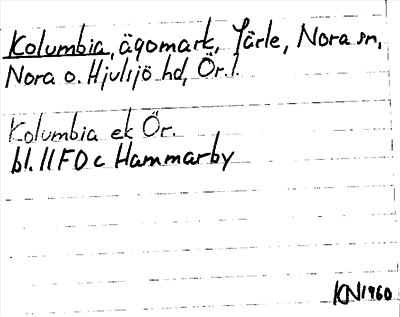 Kolumbia, ägomark, Järle, Nora sn,
Nora o. Hjulsjö hd, Ör. l.
Kolumbia ek Ör.
bl. 11F0c Hammarby
KN1960